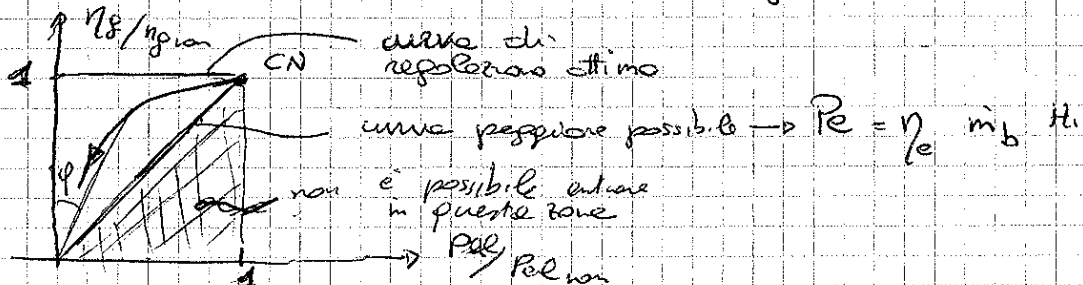 ηg/ηg,non
1
CN
curva di
regolazione ottima
curva peggiore possibile → Pe = ηe ṁb Hi
φ
non è possibile entrare
in questa zona
Pel/Pel,non
1